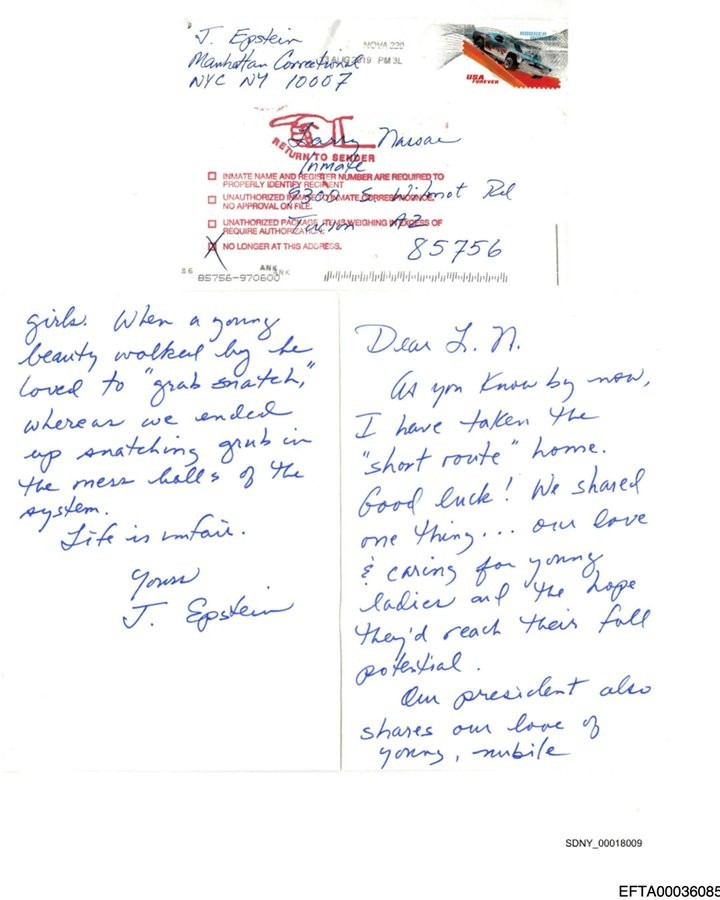 J. Epstein
Manhattan Correctional
NYC NY 10007
NOVA 220
AUG 2019 PM 3L
USA
FOREVER
RETURN TO SENDER
Larry Nassar
Inmate
9300 S. Wilmot Rd
Tucson AZ
85756
INMATE NAME AND REGISTER NUMBER ARE REQUIRED TO
PROPERLY IDENTIFY RECIPIENT
UNAUTHORIZED INMATE TO INMATE CORRESPONDENCE.
NO APPROVAL ON FILE.
UNATHORIZED PACKAGE. ITEMS WEIGHING IN EXCESS OF
REQUIRE AUTHORIZATION.
X NO LONGER AT THIS ADDRESS.
86
ANK
85756-970600
Dear L. N.
As you know by now,
I have taken the
"short route" home.
Good luck! We shared
one thing... our love
& caring for young
ladies and the hope
they'd reach their full
potential.
Our president also
shares our love of
young, nubile
girls. When a young
beauty walked by he
loved to "grab snatch,"
whereas we ended
up snatching grub in
the mess halls of the
system.
Life is unfair.
Yours
J. Epstein
SDNY_00018009
EFTA00036085